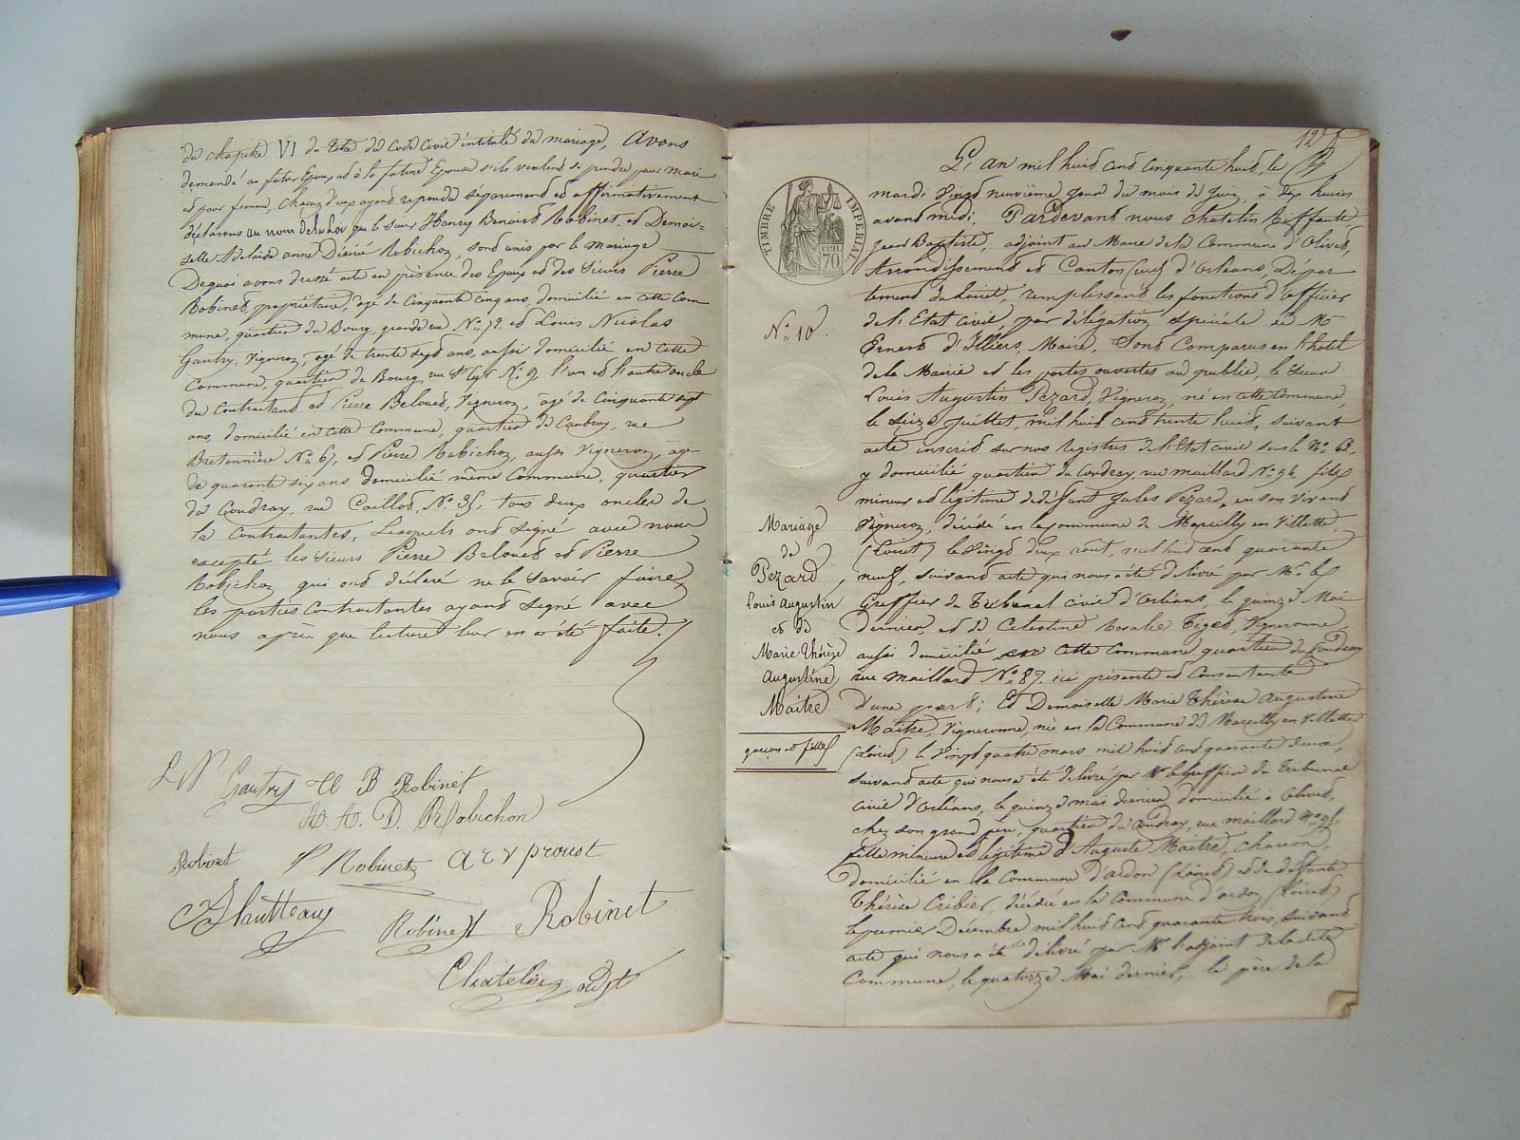 du chapitre VI du titre du Code Civil intitulé du mariage, Avons
demandé au futur Epoux et à la future Epouse s'ils veulent se prendre pour mari
et pour femme, chacun d'eux ayant repondu séparement et affirmativement
déclarons au nom de la loi que le sieur Henry Benoist Robinet et Demoi=
selle Adelaide anne Désiré Robichon, sont unis par le mariage
De quoi avons dressé acte en présence des Epoux et des Sieurs Pierre
Robinet, propriétaire, agé de Cinquante cinq ans, domicilié en cette Com
mune, quartier du Bourg, grande rue No 72 et Louis Nicolas
Gautry, Vigneron, agé de trente sept ans, aussi domicilié en cette
Commune, quartier du Bourg, rue No 9 l'un et l'autre oncle
du Contractant et Pierre Beloued, Vigneron, agé de Cinquante sept
ans, domicilié en cette Commune, quartier du Coudray, rue
Bretonnière No 6, et Pierre Robichon, aussi Vigneron, agé
de quarante six ans domicilié même Commune, quartier
du Coudray, rue Caillot, No 35, tous deux oncles de
la Contractante, Lesquels ont signé avec nous
excepté les Sieurs Pierre Beloued et Pierre
Robichon qui ont déclaré ne le savoir faire,
les parties Contractantes ayant signé avec
nous après que lecture leur en a été faite.
L N Gautry H B Robinet
A. A. D. Robichon
Robinet P Robinet a r v proust
Robinet Robinet
Chatelin adjt
125
TIMBRE IMPERIAL
CENT. 70
No 10.
Mariage
de
Pezard
Louis Augustin
et de
Marie Thérèze
Augustine
Maitre
garçon et fille
L'An mil huit cent cinquante huit, le
mardi Vingt neuvième jour du mois de Juin, à dix heures
avant midi, Pardevant nous Chatelin Roffante
Jean Baptiste, adjoint au Maire de la Commune d'Olivet,
Arrondissement et Canton (sud) d'Orléans, Dépar
tement du Loiret, remplissant les fonctions d'officier
de l'Etat Civil, par délégation spéciale de Mr
Ernest d'Illiers, Maire. Sont Comparus en l'hotel
de la Mairie et les portes ouvertes au public, le Sieur
Louis Augustin Pezard, Vigneron, né en cette Commune,
le Seize Juillet, mil huit cent trente huit, suivant
acte inscrit sur nos registres de l'Etat civil sous le No 63,
y domicilié quartier du Coudray, rue maillard No 94, fils
mineur et légitime de défunt Jules Pezard, en son vivant
Vigneron, décédé en la commune de Marcilly en Villette,
(Loiret) le Vingt deux août, mil huit cent quarante
neuf, suivant acte qui nous a été delivré par Mr le
Greffier du Tribunal civil d'Orléans, le quinze Mai
dernier, et de Celestine Rosalie Tiger, Vigneronne,
aussi domicilié en cette Commune quartier du Coudray
rue Maillard No 87. ici présente et Consentante
d'une part; Et Demoiselle Marie Thérèse Augustine
Maitre, Vigneronne, née en la Commune de Marcilly en Villette
(Loiret) le Vingt quatre mars mil huit cent quarante deux,
suivant acte qui nous a été delivré par Mr le Greffier du Tribunal
civil d'Orléans, le quinze mai dernier, domicilié à Olivet,
chez son grand père, quartier du Coudray, rue maillard No 95,
fille mineure et légitime d'Auguste Maitre, charron,
domicilié en la Commune d'ardon (Loiret) et de défunte
Thérèse Cribier, décédée en la Commune d'ardon (Loiret)
le premier Décembre mil huit cent quarante trois, suivant
acte qui nous a été delivré par Mr l'adjoint de la dite
Commune, le quatorze Mai dernier, le père de la